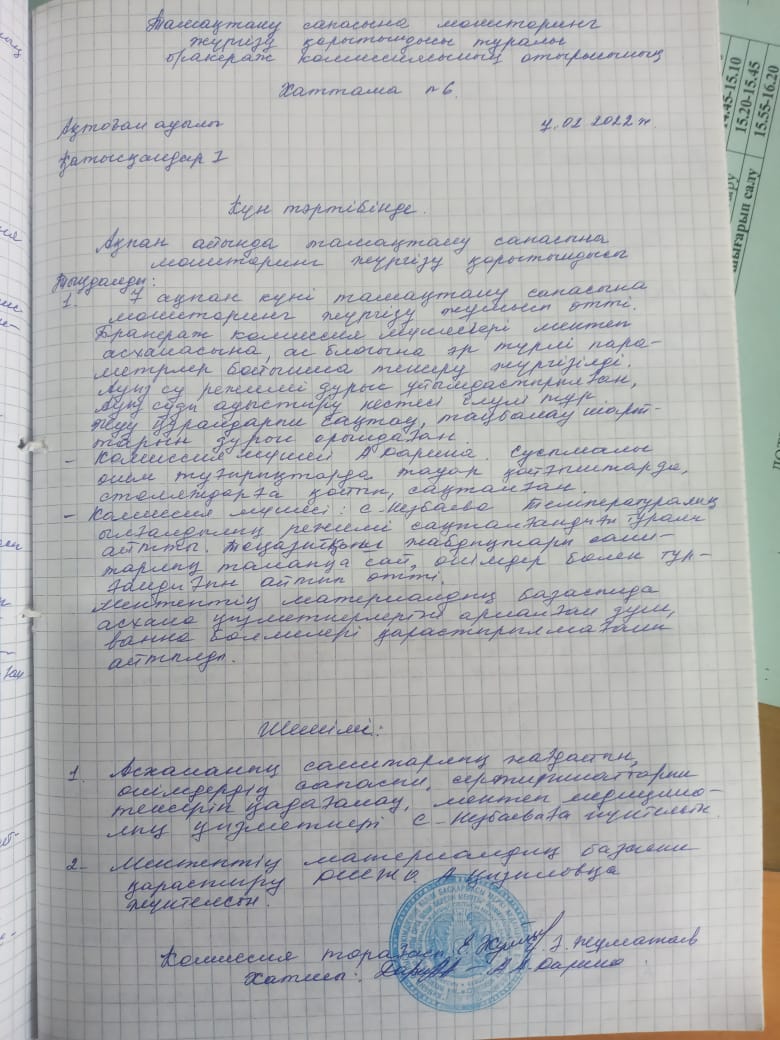 Тамақтану сапасына мониторинг
жүргізу қорытындысы туралы
бракераж комиссиясының отырысының
Хаттама №6
Ақтоған ауылы
7.02 2022ж.
Қатысқандар 7
Күн тәртібінде.
Ақпан айында тамақтану сапасына
мониторинг жүргізу қорытындысы
Тыңдалды:
1. 7 ақпан күні тамақтану сапасына
мониторинг жүргізу жұмысы өтті.
Бракераж комиссия мүшелері мектеп
асханасына, ас блогына әр түрлі пара-
метрлер бойынша тексеру жүргізілді.
Ауыз су режимі дұрыс ұйымдастырылған,
Ауыз суды ауыстыру кестесі ілулі тұр.
Жуу құралдарын сақтау, таңбалау шарт-
тарын дұрыс орындаған.
- Комиссия мүшесі А Дарина. Сусымалы
өнім тұғырықтарда тауар қойғыштарда,
стеллаждарға қойып, сақталған.
- Комиссия мүшесі: С-Незбаева Температуралық
ылғалдылық режимі сақталғандығы туралы
айтты. Тоңазытқыш жабдықтары сани-
тарлық талапқа сай, өнімдер бөлек тұр-
ғандығын айтып өтті.
Мектептің материалдық базасында
асхана қызметкерлеріне арналған душ,
ванна бөлмелері қарастырылмағаны
айтылды.
Шешімі:
1. Асхананың санитарлық жағдайын,
өнімдердің сапасын, сертификаттарын
тексеріп қадағалау, мектеп медицина-
лық қызметкері С-Незбаеваға жүктелсін.
2- Мектептің материалдық базасын
қарастыру ОІЖО А
жүктелсін.
Комиссия төрағасы Е. Жұматаев
Хатшы: А Дарина
14.45-15.10
15.20-15.45
15.55-16.20
шығарып салу